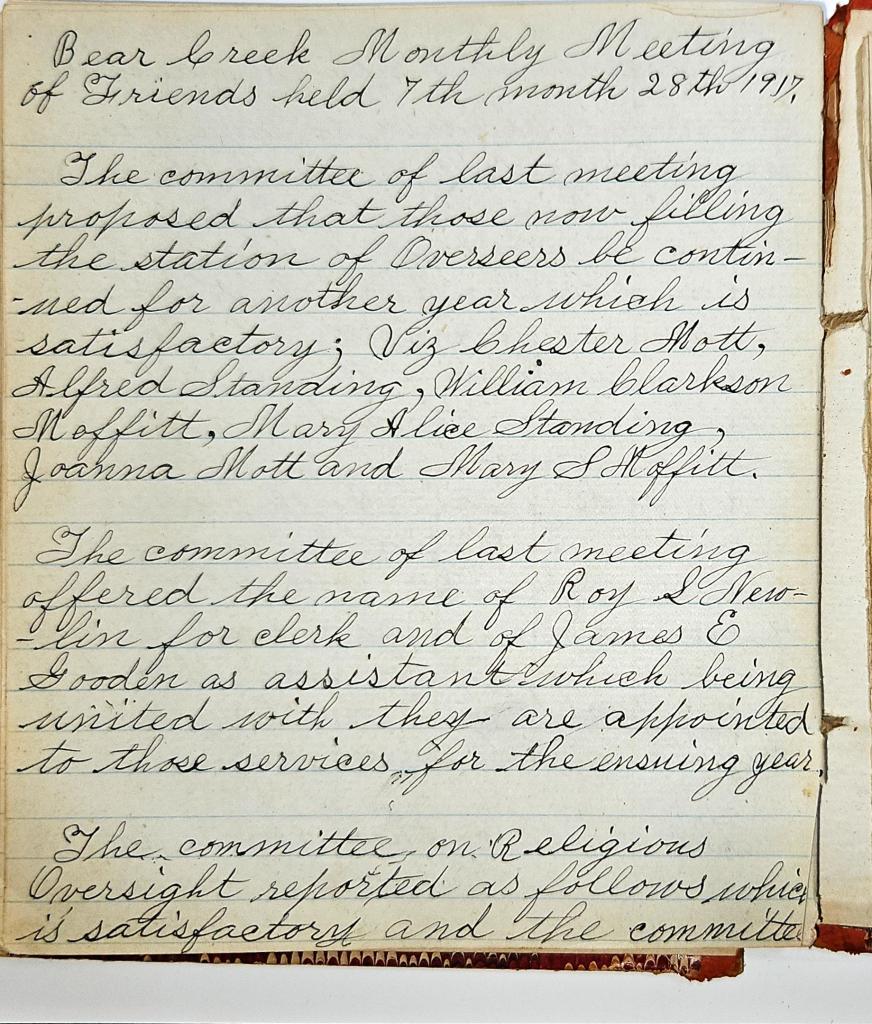 Bear Creek Monthly Meeting
of Friends held 7th month 28th 1917.
The committee of last meeting
proposed that those now filling
the station of Overseers be contin-
-ued for another year which is
satisfactory; Viz Chester Mott,
Alfred Standing, William Clarkson
Moffitt, Mary Alice Standing,
Joanna Mott and Mary S Moffitt.
The committee of last meeting
offered the name of Roy L New-
-lin for clerk and of James E
Gooden as assistant which being
united with they are appointed
to those services, for the ensuing year.
The committee on Religious
Oversight reported as follows which
is satisfactory and the committee